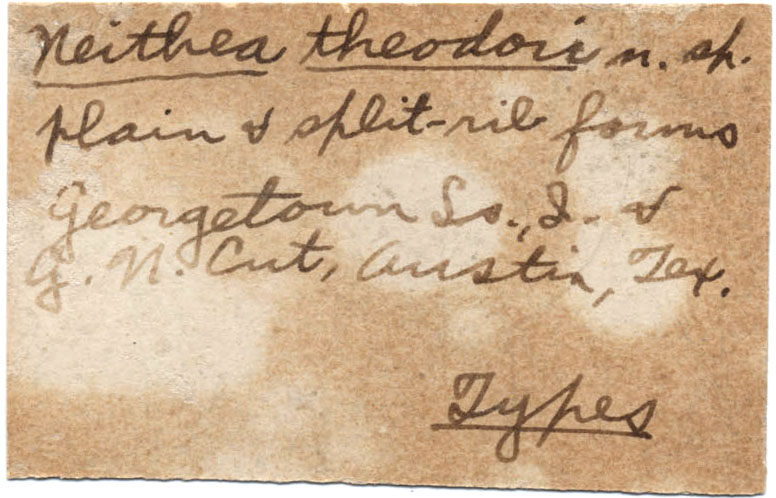 Neithea theodori n. sp.
plain & split-rib forms
Georgetown Ls., I. &
G. N. Cut, Austin, Tex.
Types